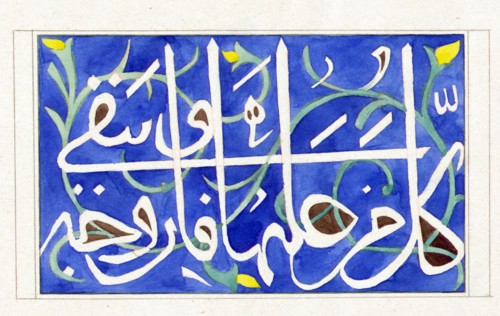 كل من عليها فان ويبقى وجه